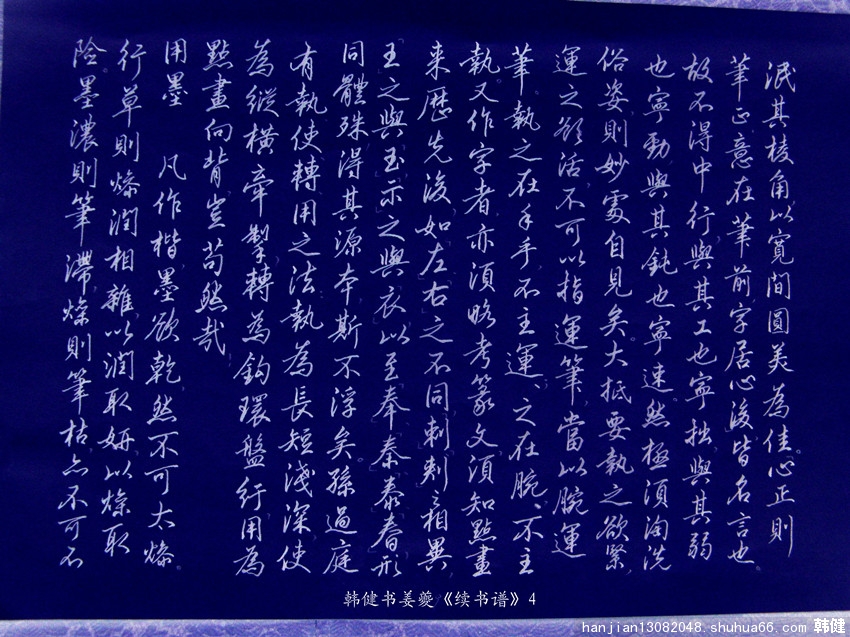 泯其棱角以寬閒圓美為佳心正則
筆正意在筆前字居心後皆名言也
故不得中行與其工也寧拙與其弱
也寧勁與其鈍也寧速然極須淘洗
俗姿則妙處自見矣大抵要執之欲緊
運之欲活不可以指運筆當以腕運
筆執之在手手不主運、之在腕、不主
執又作字者亦須略考篆文須知點畫
来歷先後如左右之不同刺剌之相異
王之與玉示之與衣以至奉秦泰春形
同體殊得其源本斯不浮矣孫過庭
有執使轉用之法執為長短淺深使
為縱橫牽掣轉為鈎環盤行用為
點畫向背豈苟然哉
用墨 凡作楷墨欲乾然不可太燥
行草則燥潤相雜以潤取妍以燥取
險墨濃則筆滯燥則筆枯亦不可不
韩健书姜夔《续书谱》4
hanjian13082048.shuhua66.com 韩健